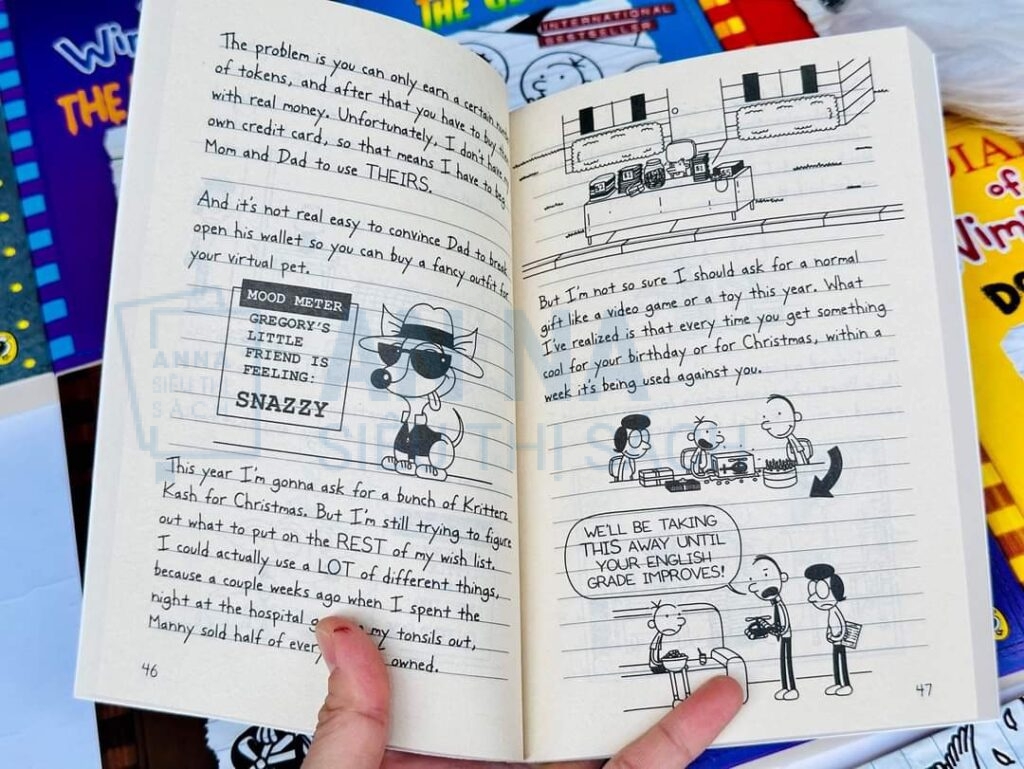 THE
INTERNATIONAL
BESTSELLER
THE
The problem is you can only earn a certain
of tokens, and after that you have to buy
with real money. Unfortunately, I don't have my
own credit card, so that means I have to beg
Mom and Dad to use THEIRS.
And it's not real easy to convince Dad to break
open his wallet so you can buy a fancy outfit for
your virtual pet.
MOOD METER
GREGORY'S
LITTLE
FRIEND IS
FEELING:
SNAZZY
This year I'm gonna ask for a bunch of Kritterz
Kash for Christmas. But I'm still trying to figure
out what to put on the REST of my wish list.
I could actually use a LOT of different things,
because a couple weeks ago when I spent the
night at the hospital my tonsils out,
Manny sold half of owned.
46
But I'm not so sure I should ask for a normal
gift like a video game or a toy this year. What
I've realized is that every time you get something
cool for your birthday or for Christmas, within a
week it's being used against you.
WE'LL BE TAKING
THIS AWAY UNTIL
YOUR ENGLISH
GRADE IMPROVES!
47
of
ANNA
SIÊU THỊ
SÁCH
ANNA
SIÊU THỊ SÁCH